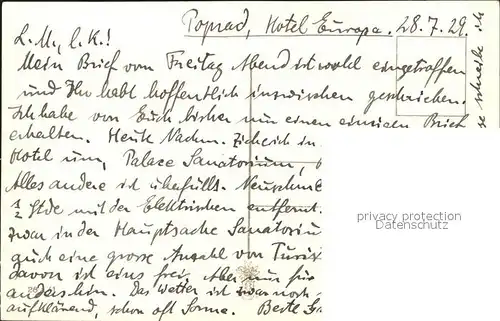 Poprad, Hotel Europa. 28.7.29.
L. M., l. K.!
Mein Brief vom Freitag Abend ist wohl eingetroffen
und Ihr habt hoffentlich inzwischen geschrieben.
Ich habe von Euch bisher nur einen einzigen Brief
erhalten. Heute Nachm. ziehe ich in
Hotel um, Palace Sanatorium,
Alles andere ist überfüllt.
1/2 Stde mit der Elektrischen entfernt.
zwar in der Hauptsache Sanatorium
auch eine grosse Anzahl von
davon ist eins frei, Aber nur für
anderthin. Das Wetter ist zwar noch
aufklärend, schon oft Sonne. Beste
schreibe ich
privacy protection
Datenschutz